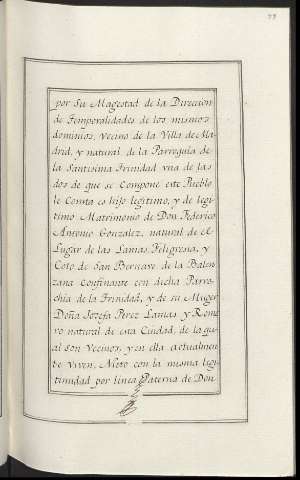 77
por Su Magestad de la Direccion
de Temporalidades de los mismos
dominios, vecino de la Villa de Ma-
drid, y natural de la Parroquia de
la Santisima Trinidad vna de las
dos de que se Compone este Pueblo
le Consta es hijo legitimo, y de legi-
timo Matrimonio de Don Federico
Antonio Gonzalez, natural de el
Lugar de las Lamas, Feligresia, y
Coto de San Bernavé de la Balen-
zana Confinante con dicha Parro-
chia de la Trinidad, y de su Muger
Doña Josefa Perez Lamas y Rome-
ro natural de esta Ciudad, de la qu-
al son Vecinos, y en ella actualmen-
te Viven, Nieto con la misma legi-
timidad por linea Paterna de Don